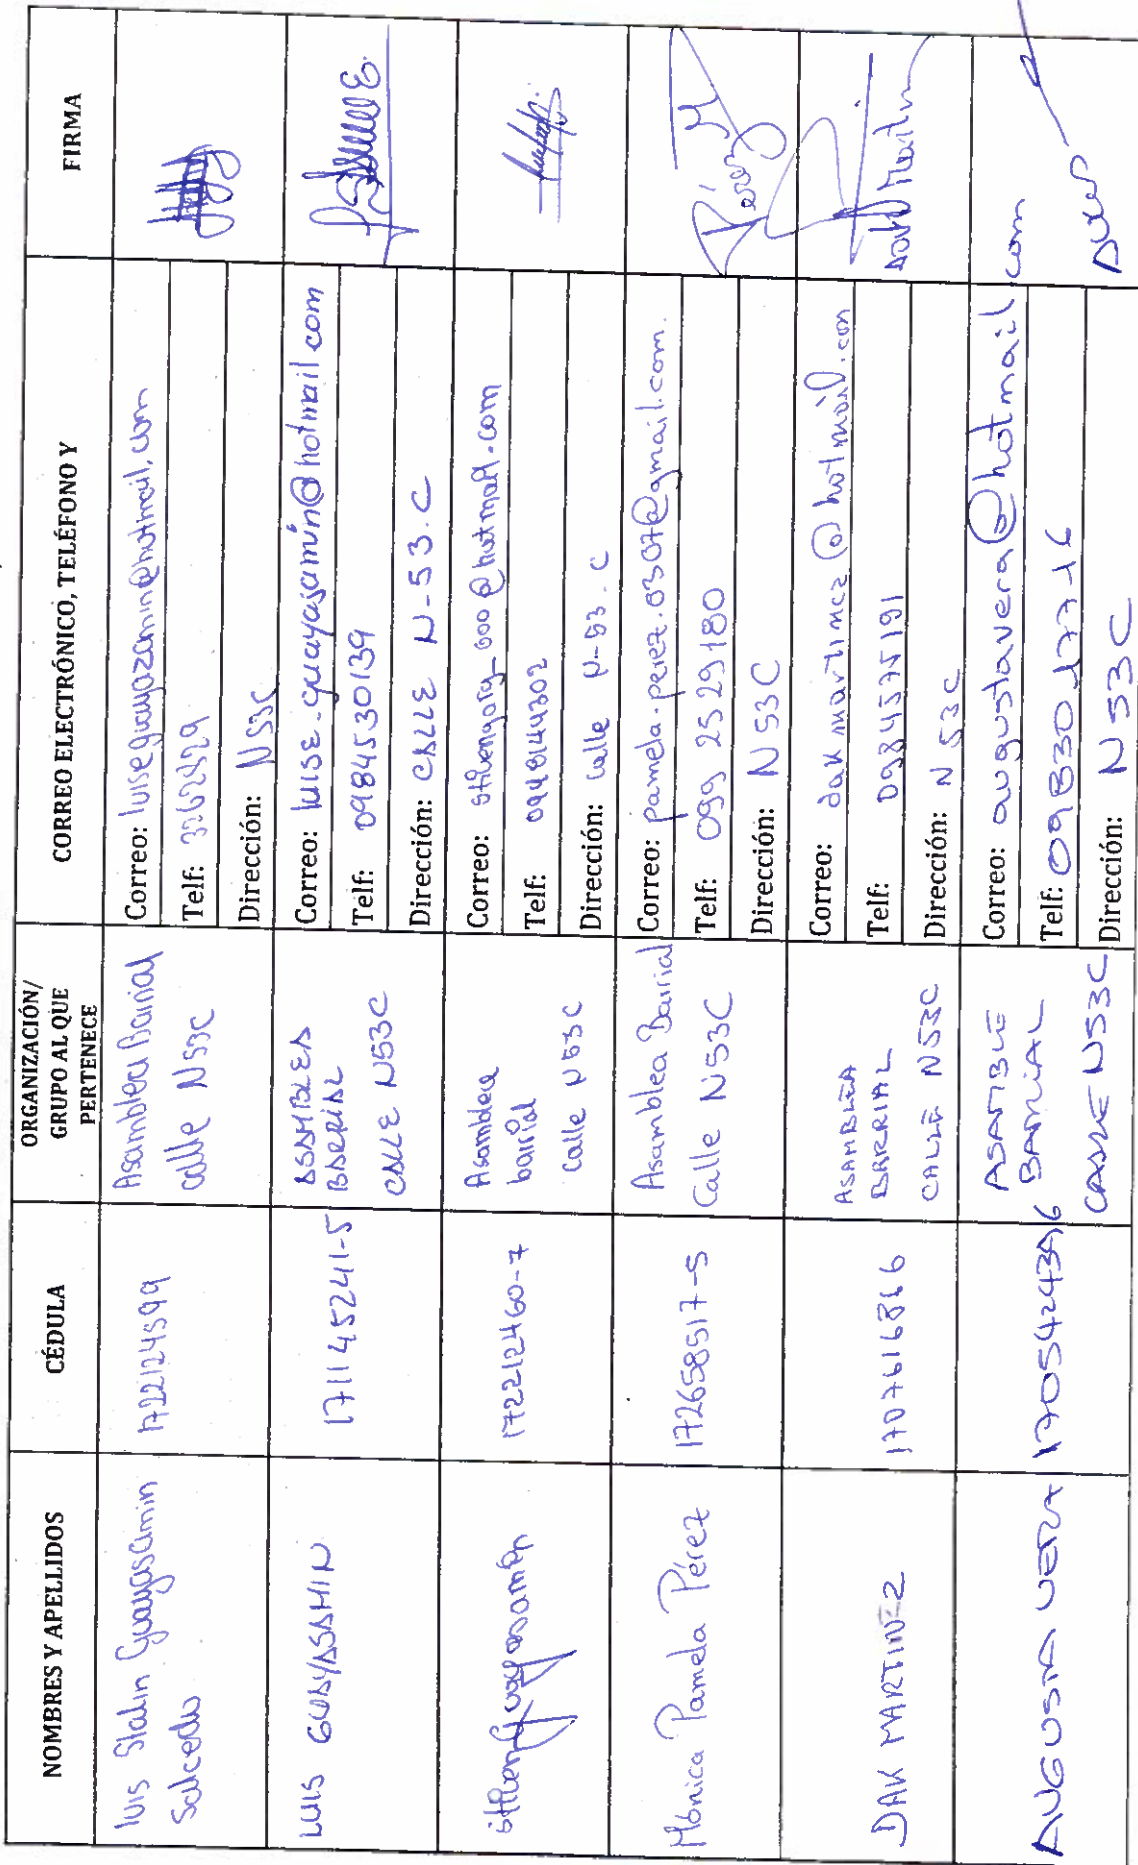 NOMBRES Y APELLIDOS
CÉDULA
ORGANIZACIÓN/
GRUPO AL QUE
PERTENECE
CORREO ELECTRÓNICO, TELÉFONO Y
FIRMA
luis Stalin Guayasamin
Salcedo
1722124599
Asamblea Barrial
calle N53C
Correo: luiseguayazamin@hotmail.com
Telf: 3262429
Dirección: N53C
LUIS GUAYASAMIN
171145241-5
ASAMBLEA
BARRIAL
CALLE N53C
Correo: luise-guayasamin@hotmail.com
Telf: 0984530139
Dirección: CALLE N-53.C
172212460-7
Asamblea
barrial
Calle N53C
Correo:
Telf:
Dirección: calle N-53.C
Mónica Pamela Pérez
172658517-5
Asamblea Barrial
Calle N53C
Correo: pamela.perez.0307@gmail.com.
Telf: 099 2529180
Dirección: N53C
Pérez M
DAK MARTINEZ
1707616866
ASAMBLEA
BARRIAL
CALLE N53C
Correo: dak martinez@hotmail.com
Telf: 0984575191
Dirección: N 53C
AUGUSTA VERA
ASAMBLE
BARRIAL
N53C
Correo: augustavera@hotmail com
Telf:
Dirección: N 53C